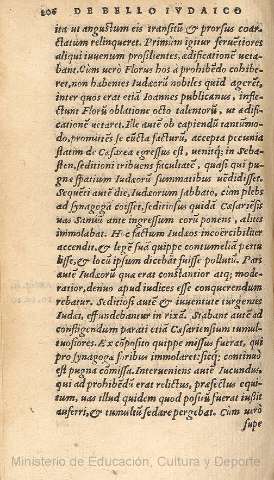 206 DE BELLO IVDAICO
ita ut angustum eis transitũ & prorsus coar
ctatum relinqueret. Primùm igitur feruẽtiores
aliqui iuuenum prosilientes, ædificationẽ veta-
bant. Cùm verò Florus hos à prohibẽdo cohibe-
ret, non habentes Iudæorũ nobiles quid agerẽt,
inter quos erat etiã Ioannes publicanus, infle-
ctunt Florũ oblatione octo talentorũ, ut ædifi-
cationẽ vetaret. Ille autẽ ob capiendũ tantũmo-
do, promittẽs se cũcta facturũ, accepta pecunia
statim de Cæsarea egressus est, venitq; in Sebа-
sten, seditioni tribuens facultatẽ, quasi qui pu-
gnæ spatium Iudæorũ summatibus vẽdidisset.
Sequẽti autẽ die, Iudæorum sabbato, cùm plebs
ad synagogã coisset, seditiosus quidã Cæsariẽsis
vas Samiũ ante ingressum eorũ ponens, alites
immolabat. Hoc factum Iudæos incoërcibiliter
accendit, & legẽ suã quippe contumeliã pertu
lisse, & locũ ipsum dicebãt fuisse pollutũ. Pars
autẽ Iudæorũ qua erat constantior atq; mode-
ratior, denuo apud iudices esse conquerendum
rebatur. Seditiosi autẽ & iuuentute turgentes
Iudæi, effundebantur in rixã. Stabant autẽ ad
confligendum parati etiã Cæsariensium tumul-
tuosiores. Ex cõposito quippe missus fuerat, qui
pro synagogæ foribus immolaret: sicq; continuò
est pugna cõmissa. Interueniens autẽ Iucundus,
qui ad prohibẽdũ erat relictus, præfectus equi-
tum, vas illud quidem quod positũ fuerat iussit
auferri, & tumultũ sedare pergebat. Cùm verò
supe
Ministerio de Educación, Cultura y Deporte